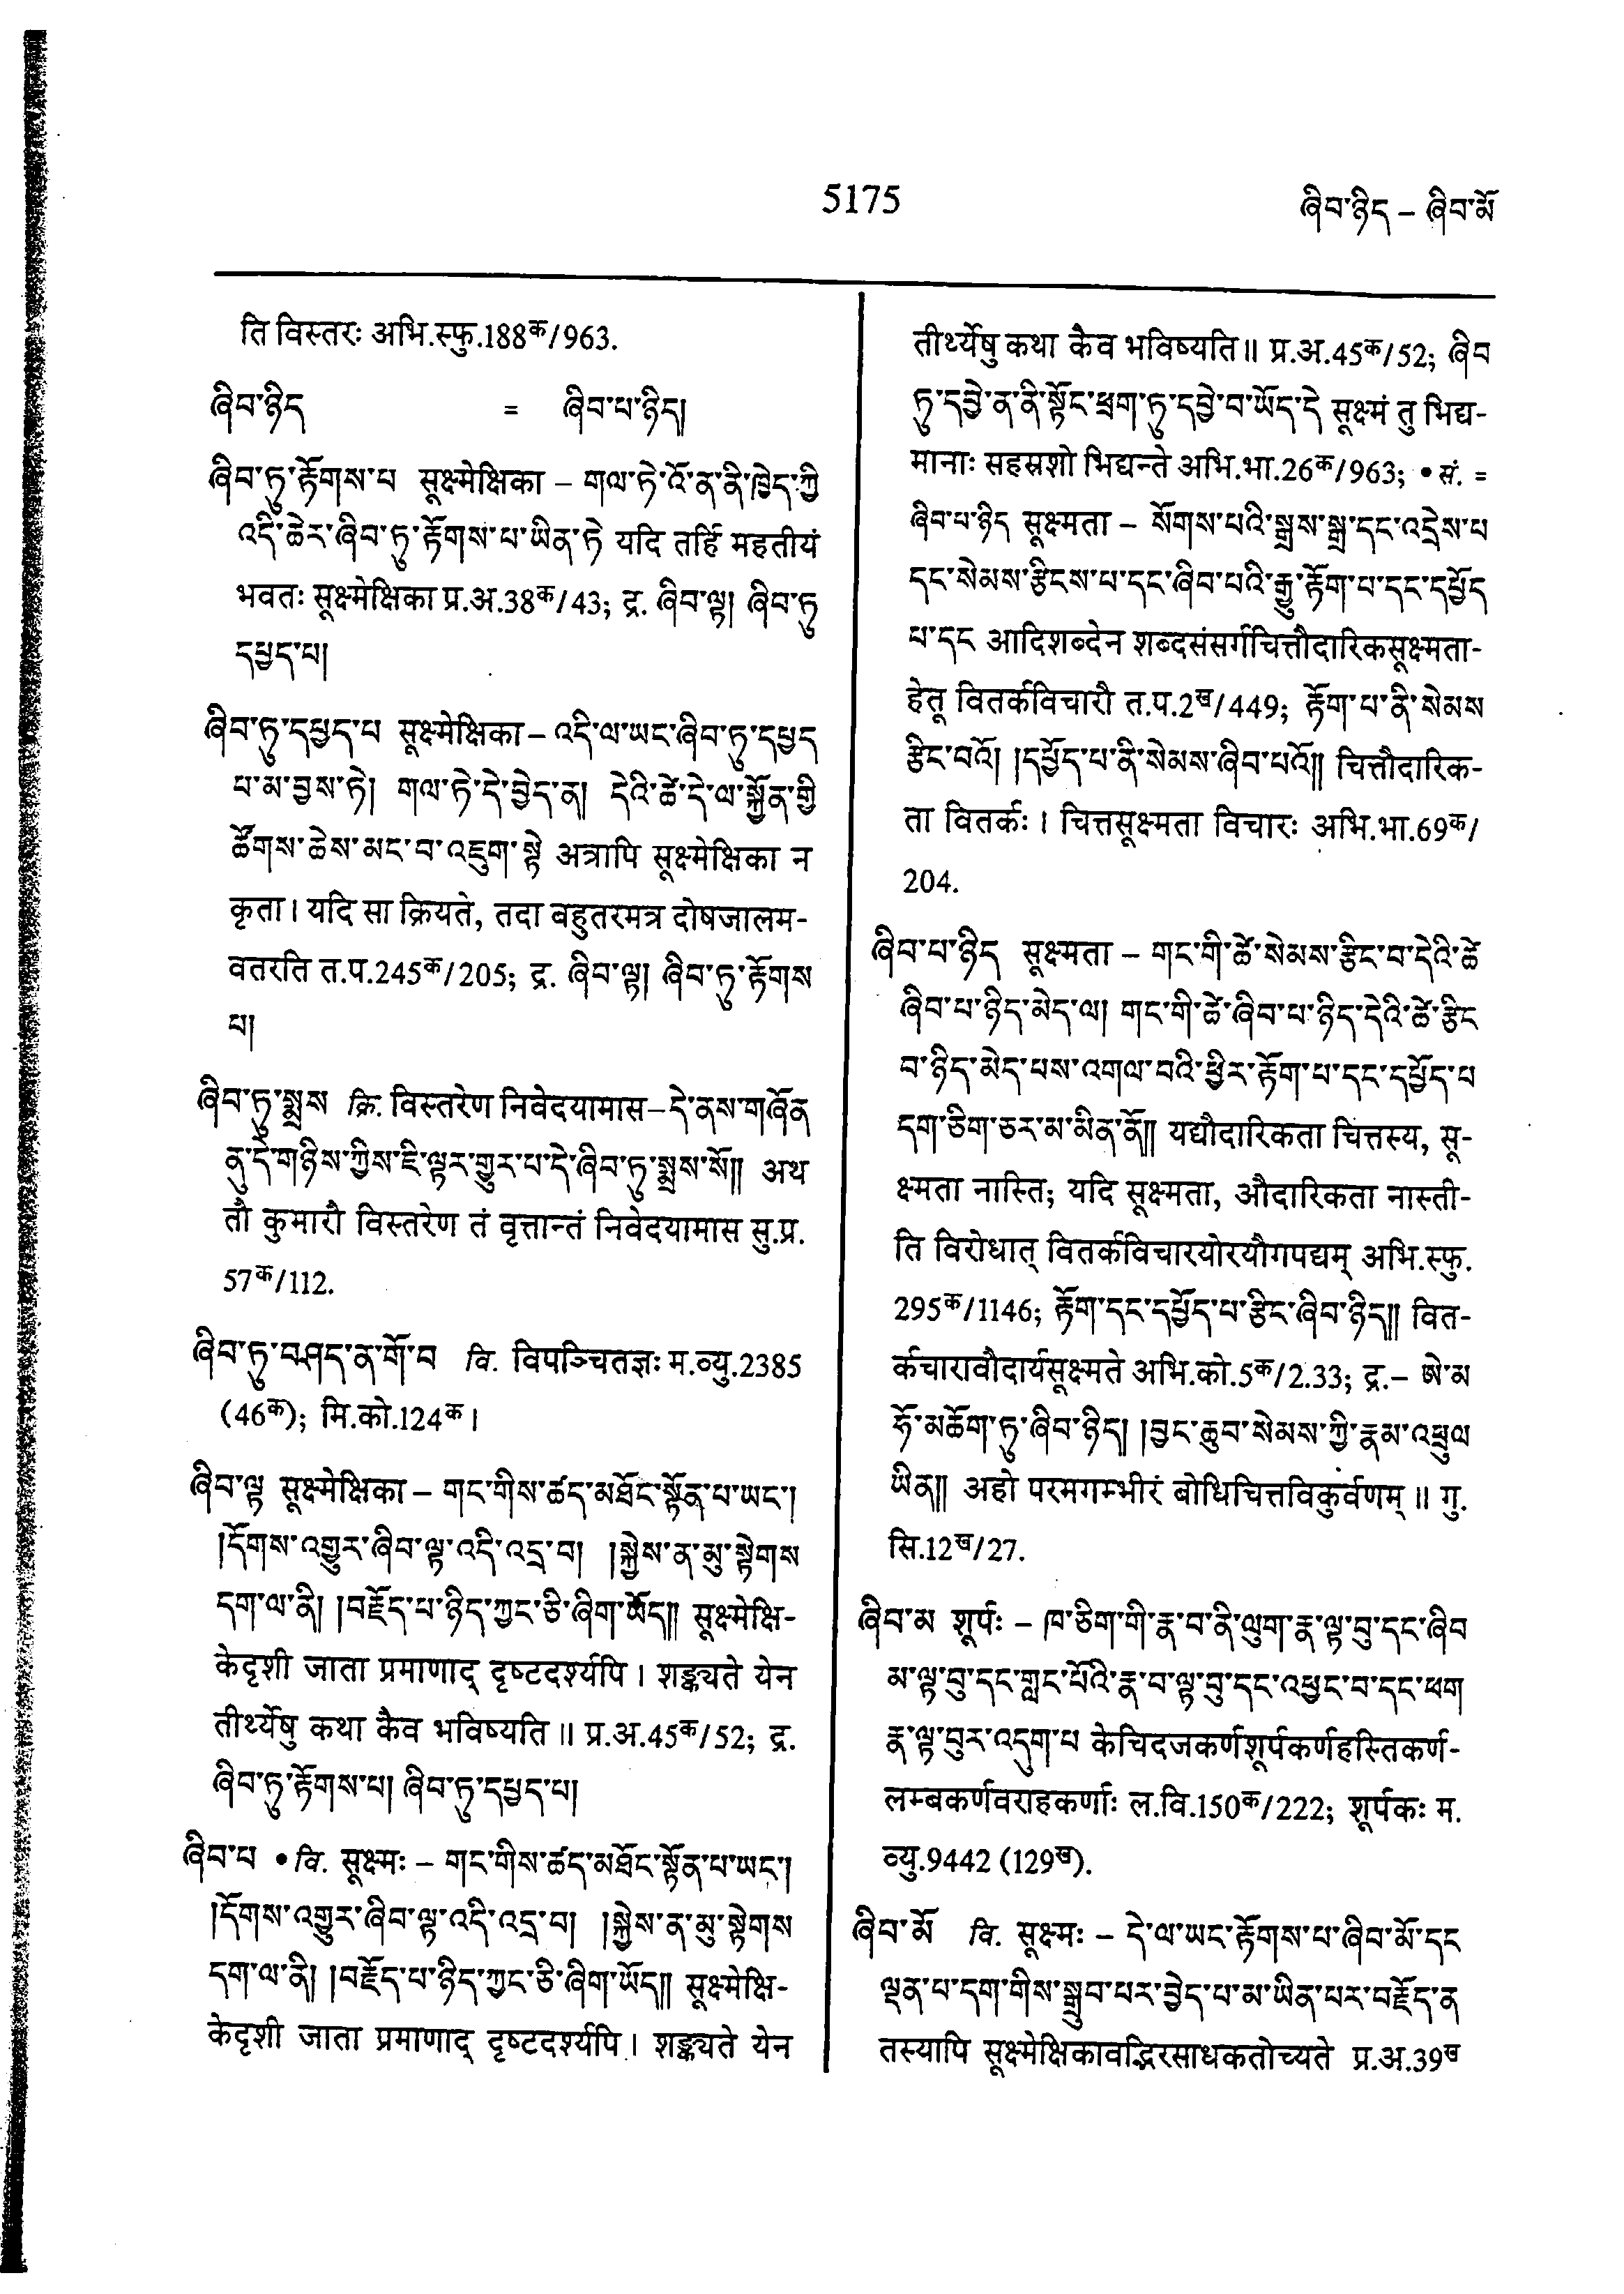 5175
ཞིབ་ཉིད – ཞིབ་མོ
ति विस्तरः अभि.स्फु.188क/963.
ཞིབ་ཉིད = ཞིབ་པ་ཉིད།
ཞིབ་ཏུ་རྟོགས་པ सूक्ष्मेक्षिका – གལ་ཏེ་འོ་ན་ནི་ཁྱེད་ཀྱི
འདི་ཆེར་ཞིབ་ཏུ་རྟོགས་པ་ཡིན་ཏེ यदि तर्हि महतीयं
भवतः सूक्ष्मेक्षिका प्र.अ.38क/43; द्र. ཞིབ་ལྟ། ཞིབ་ཏུ
དཔྱད་པ།
ཞིབ་ཏུ་དཔྱད་པ सूक्ष्मेक्षिका – འདི་ལ་ཡང་ཞིབ་ཏུ་དཔྱད
པ་མ་བྱས་ཏེ། གལ་ཏེ་དེ་བྱེད་ན། དེའི་ཚེ་དེ་ལ་སྐྱོན་གྱི
ཚོགས་ཆེས་མང་བ་འཇུག་སྟེ अत्रापि सूक्ष्मेक्षिका न
कृता। यदि सा क्रियते, तदा बहुतरमत्र दोषजालम-
वतरति त.प.245क/205; द्र. ཞིབ་ལྟ། ཞིབ་ཏུ་རྟོགས
པ།
ཞིབ་ཏུ་སྨྲས क्रि. विस्तरेण निवेदयामास – དེ་ནས་གཞོན
ནུ་དེ་གཉིས་ཀྱིས་ཇི་ལྟར་གྱུར་པ་དེ་ཞིབ་ཏུ་སྨྲས་སོ།། अथ
तौ कुमारौ विस्तरेण तं वृत्तान्तं निवेदयामास सु.प्र.
57क/112.
ཞིབ་ཏུ་བཤད་ན་གོ་བ वि. विपञ्चितज्ञः म.व्यु.2385
(46क); मि.को.124क।
ཞིབ་ལྟ सूक्ष्मेक्षिका – གང་གིས་ཚད་མཐོང་སྟོན་པ་ཡང་།
།དོགས་འགྱུར་ཞིབ་ལྟ་འདི་འདྲ་བ། །སྐྱེས་ན་མུ་སྟེགས
དག་ལ་ནི། །བརྗོད་པ་ཉིད་ཀྱང་ཅི་ཞིག་ཡོད།། सूक्ष्मेक्षि-
केदृशी जाता प्रमाणाद् दृष्टदर्श्यपि। शङ्क्यते येन
तीर्थ्येषु कथा कैव भविष्यति॥ प्र.अ.45क/52; द्र.
ཞིབ་ཏུ་རྟོགས་པ། ཞིབ་ཏུ་དཔྱད་པ།
ཞིབ་པ • वि. सूक्ष्मः – གང་གིས་ཚད་མཐོང་སྟོན་པ་ཡང་།
།དོགས་འགྱུར་ཞིབ་ལྟ་འདི་འདྲ་བ། །སྐྱེས་ན་མུ་སྟེགས
དག་ལ་ནི། །བརྗོད་པ་ཉིད་ཀྱང་ཅི་ཞིག་ཡོད།། सूक्ष्मेक्षि-
केदृशी जाता प्रमाणाद् दृष्टदर्श्यपि। शङ्क्यते येन
तीर्थ्येषु कथा कैव भविष्यति॥ प्र.अ.45क/52; ཞིབ
ཏུ་དབྱེ་ན་ནི་སྟོང་ཕྲག་ཏུ་དབྱེ་བ་ཡོད་དེ सूक्ष्मं तु भिद्य-
मानाः सहस्रशो भिद्यन्ते अभि.भा.26क/963; • सं. =
ཞིབ་པ་ཉིད सूक्ष्मता – སོགས་པའི་སྒྲས་སྒྲ་དང་འདྲེས་པ
དང་སེམས་རྩིངས་པ་དང་ཞིབ་པའི་རྒྱུ་རྟོག་པ་དང་དཔྱོད
པ་དང आदिशब्देन शब्दसंसर्गचित्तौदारिकसूक्ष्मता-
हेतू वितर्कविचारौ त.प.2ख/449; རྟོག་པ་ནི་སེམས
རྩིང་བའོ། །དཔྱོད་པ་ནི་སེམས་ཞིབ་པའོ།། चित्तौदारिक-
ता वितर्कः। चित्तसूक्ष्मता विचारः अभि.भा.69क/
204.
ཞིབ་པ་ཉིད सूक्ष्मता – གང་གི་ཚེ་སེམས་རྩིང་བ་དེའི་ཚེ
ཞིབ་པ་ཉིད་མེད་ལ། གང་གི་ཚེ་ཞིབ་པ་ཉིད་དེའི་ཚེ་རྩིང
བ་ཉིད་མེད་པས་འགལ་བའི་ཕྱིར་རྟོག་པ་དང་དཔྱོད་པ
དག་ཅིག་ཅར་མ་མིན་ནོ།། यद्यौदारिकता चित्तस्य, सू-
क्ष्मता नास्ति; यदि सूक्ष्मता, औदारिकता नास्ती-
ति विरोधात् वितर्कविचारयोरयौगपद्यम् अभि.स्फु.
295क/1146; རྟོག་དང་དཔྱོད་པ་རྩིང་ཞིབ་ཉིད།། वित-
र्कचारावौदार्यसूक्ष्मते अभि.को.5क/2.33; द्र.– ཨེ་མ
ཧོ་མཆོག་ཏུ་ཞིབ་ཉིད། །བྱང་ཆུབ་སེམས་ཀྱི་རྣམ་འཕྲུལ
ཡིན།། अहो परमगम्भीरं बोधिचित्तविकुर्वणम्॥ गु.
सि.12ख/27.
ཞིབ་མ शूर्पः – ཁ་ཅིག་གི་རྣ་བ་ནི་ལུག་རྣ་ལྟ་བུ་དང་ཞིབ
མ་ལྟ་བུ་དང་གླང་པོའི་རྣ་བ་ལྟ་བུ་དང་འཕྱང་བ་དང་ཕག
རྣ་ལྟ་བུར་འདུག་པ केचिदजकर्णशूर्पकर्णहस्तिकर्ण-
लम्बकर्णवराहकर्णाः ल.वि.150क/222; शूर्पकः म.
व्यु.9442 (129ख).
ཞིབ་མོ वि. सूक्ष्मः – དེ་ལ་ཡང་རྟོགས་པ་ཞིབ་མོ་དང
ལྡན་པ་དག་གིས་སྒྲུབ་པར་བྱེད་པ་མ་ཡིན་པར་བརྗོད་ན
तस्यापि सूक्ष्मेक्षिकावद्भिरसाधकतोच्यते प्र.अ.39ख